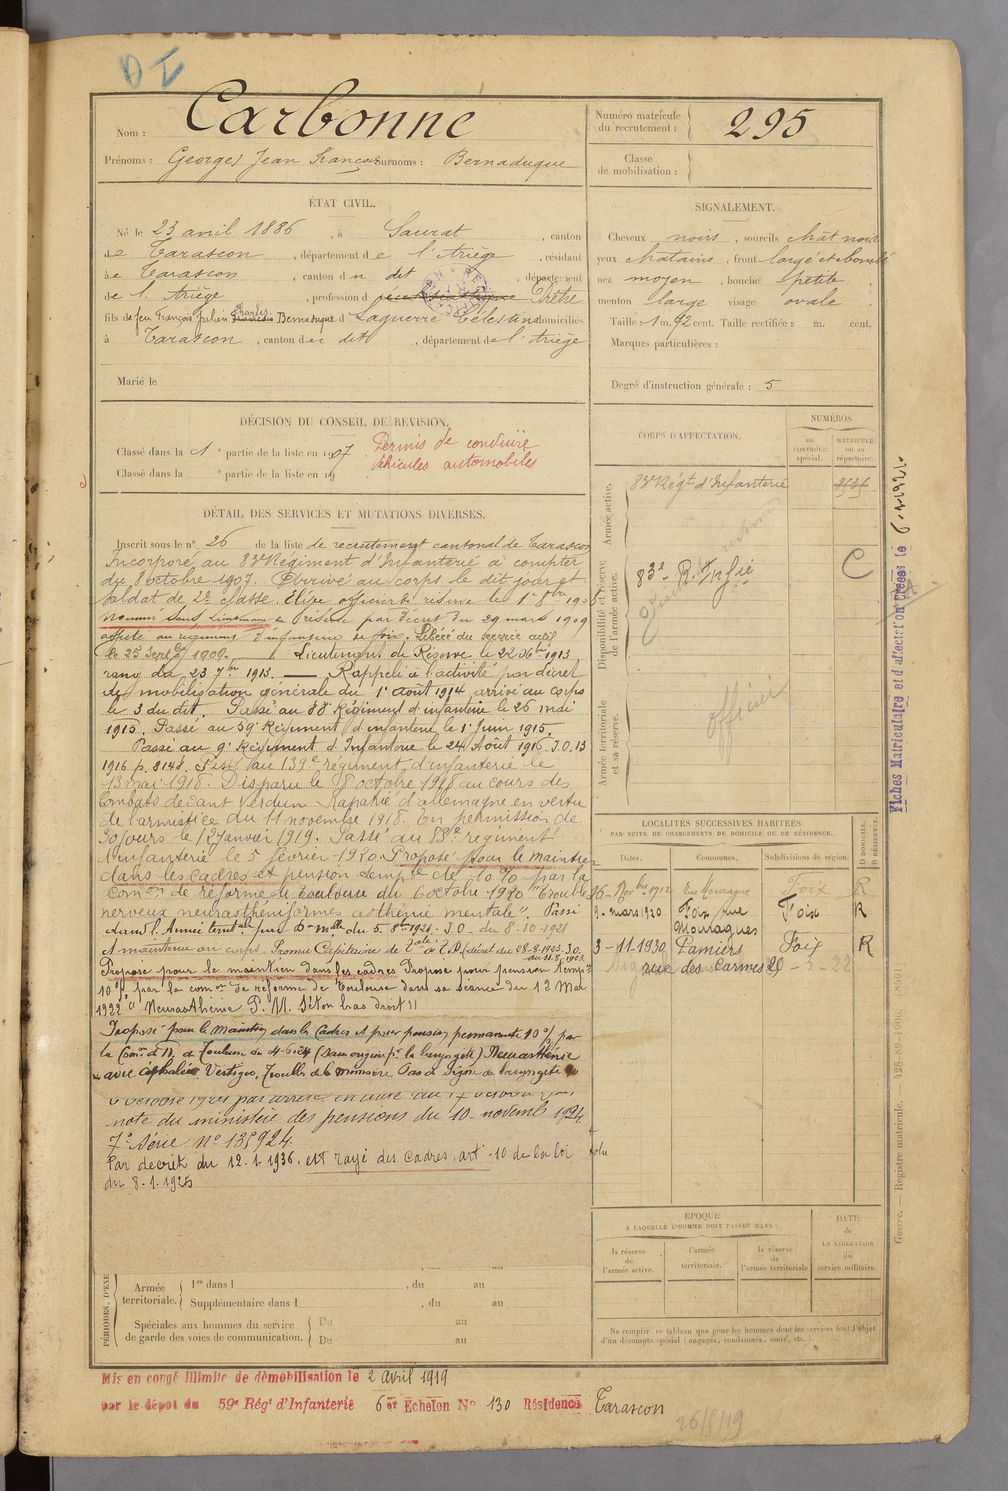 DI
Nom : Carbonne
Prénoms : Georges Jean François Surnoms : Bernaduque
Numéro matricule du recrutement : 295
Classe de mobilisation :
ÉTAT CIVIL.
Né le 23 avril 1886, à Saurat, canton
de Tarascon, département de l'Ariège, résidant
à Tarascon, canton du dit, département
de l'Ariège, profession d ecclésiastique Prêtre
fils de feu François Julien Charles Bernaduque et d Laguerre Célestine domiciliés
à Tarascon, canton du dit, département de l'Ariège
Marié le
SIGNALEMENT.
Cheveux noirs, sourcils chât noirs
yeux châtains, front large et bombé
nez moyen, bouche petite
menton large visage ovale
Taille 1 m. 92 cent. Taille rectifiée : m. cent.
Marques particulières :
Degré d'instruction générale : 5
DÉCISION DU CONSEIL DE REVISION.
Classé dans la 1e partie de la liste en 1907
Classé dans la e partie de la liste en 19
Permis de conduire
véhicules automobiles
DÉTAIL DES SERVICES ET MUTATIONS DIVERSES.
Inscrit sous le n° 26 de la liste de recrutement cantonal de Tarascon
Incorporé au 83e Régiment d'Infanterie à compter
du 8 octobre 1907. Arrivé au corps le dit jour et
soldat de 2e classe. Élève officier de réserve le 1er 8bre 1908
Nommé sous lieutenant de réserve par décret du 29 mars 1909
affecté au régiment d'infanterie de Foix. Libéré du service actif
le 25 Septbre 1909. Lieutenant de Réserve le 22 06bre 1913
rang du 23 7bre 1913. — Rappelé à l'activité par décret
de mobilisation générale du 1er août 1914 arrivé au corps
le 3 du dit. Passé au 88e Régiment d'infanterie le 26 mai
1915. Passé au 59e Régiment d'infanterie le 1er Juin 1915.
Passé au 9e Régiment d'Infanterie le 24 Août 1916 J.O. 13
1916 p. 8148. Passé au 139e régiment d'infanterie le
13 mai 1918. Disparu le 8 octobre 1918 au cours des
Combats devant Verdun. Rapatrié d'allemagne en vertu
de l'armistice du 11 novembre 1918. En permission de
30 jours le 12 janvier 1919. Passé au 88e régiment
d'infanterie le 5 février 1920. Proposé pour le maintien
dans les cadres et pension temp re de 10% par la
Comon de réforme de Toulouse du 6 octobre 1920 "Troubles
nerveux neurasthéniformes asthénie mentale". Passé
dans l'Armée territale par Don Mlle du 5.8bre 1921. J.O. du 8-10-1921
A maintenu au corps. Promu Capitaine de Tale à T.D. (décret du 28-8-1923 J.O. du 31.8.1923
Proposé pour le maintien dans les cadres Proposé pour pension temp re
10% par la comon de réforme de Toulouse dans sa séance du 12 Mai
1922 "Neurasthénie P. M. Séton bras droit"
Proposé pour le maintien dans les Cadres et pour pension permanente 10% par
la Comon de R. de Toulouse du 4-6-24 (sans origine pr la laryngite) Neurasthénie
avec céphalée Vertiges, Troubles de la mémoire. Pas de signe de laryngite
note du ministère des pensions du 10 novemb 1924.
7e série N° 135924.
Par décret du 12.1.1936, est rayé des Cadres, art. 10 de la loi
du 8.1.1925
CORPS D'AFFECTATION.
NUMÉROS
AU CONTRÔLE spécial.
MATRICULE ou au répertoire.
Armée active.
83e Régt d'Infanterie
Disponibilité et réserve de l'armée active.
83e R. Infie
C
Armée territoriale et sa réserve.
officier
LOCALITÉS SUCCESSIVES HABITÉES
PAR SUITE DE CHANGEMENTS DE DOMICILE OU DE RÉSIDENCE.
Dates. Communes. Subdivisions de région. D DOMICILE. R RÉSIDENCE.
16 Novbre 1912 Foix R
9 mars 1920 Foix rue Montagues Foix R
3-11.1930 Pamiers rue des Carmes 29 Foix R
ÉPOQUE
A LAQUELLE L'HOMME DOIT PASSER DANS :
la réserve de l'armée active.
l'armée territoriale.
la réserve de l'armée territoriale
DATE de LA LIBÉRATION du service militaire.
Ne remplir ce tableau que pour les hommes dont les services font l'objet
d'un décompte spécial (engagés, condamnés, omis, etc.).
PÉRIODES D'EXE
Armée territoriale. 1re dans l , du au
Supplémentaire dans l , du au
Spéciales aux hommes du service de garde des voies de communication. Du au
Du au
Mis en congé illimité de démobilisation le 2 avril 1919
par le dépôt du 59e Régt d'Infanterie 6e Echelon N° 130 Résidence Tarascon
26/8/19
Fiches Matriculaire et d'affectation Créées le
Guerre. — Registre matricule.